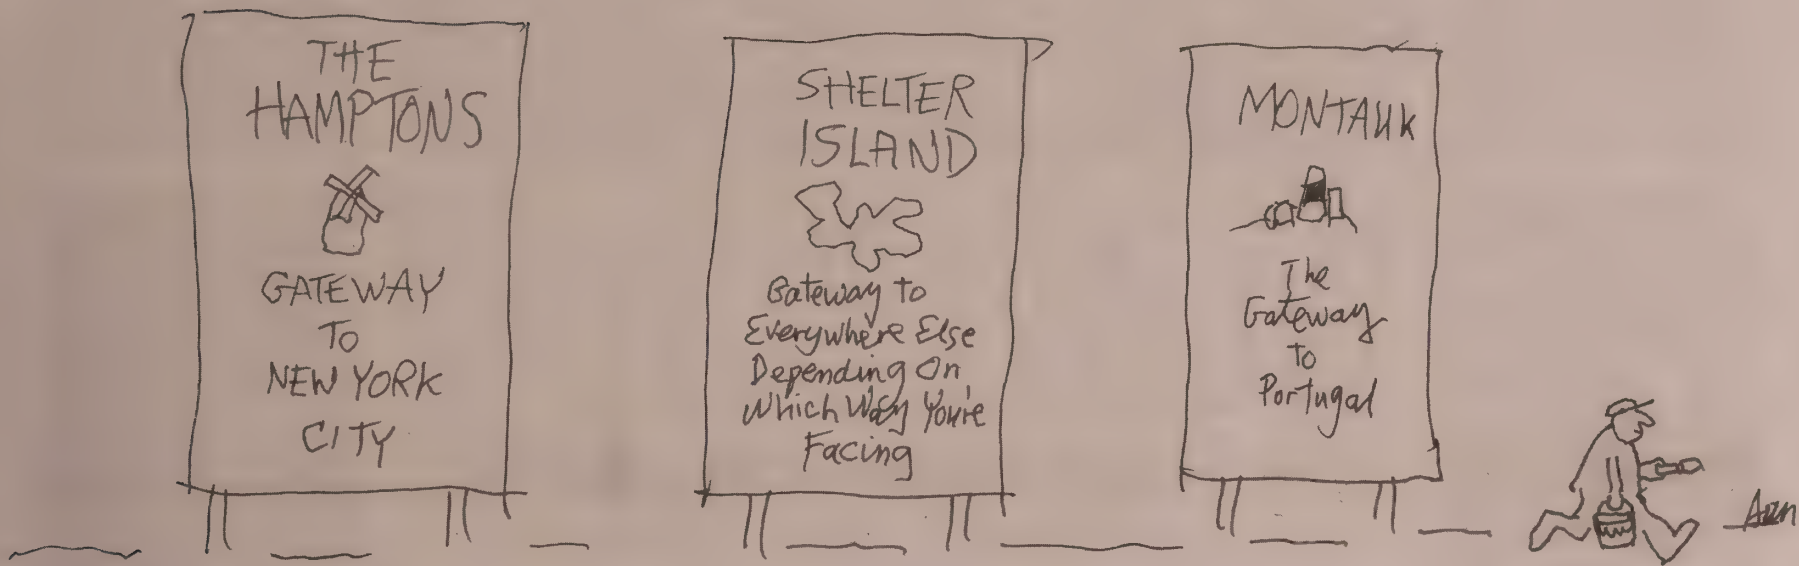 THE
HAMPTONS
GATEWAY
TO
NEW YORK
CITY
SHELTER
ISLAND
Gateway to
Everywhere Else
Depending On
Which Way You're
Facing
MONTAUK
The
Gateway
to
Portugal